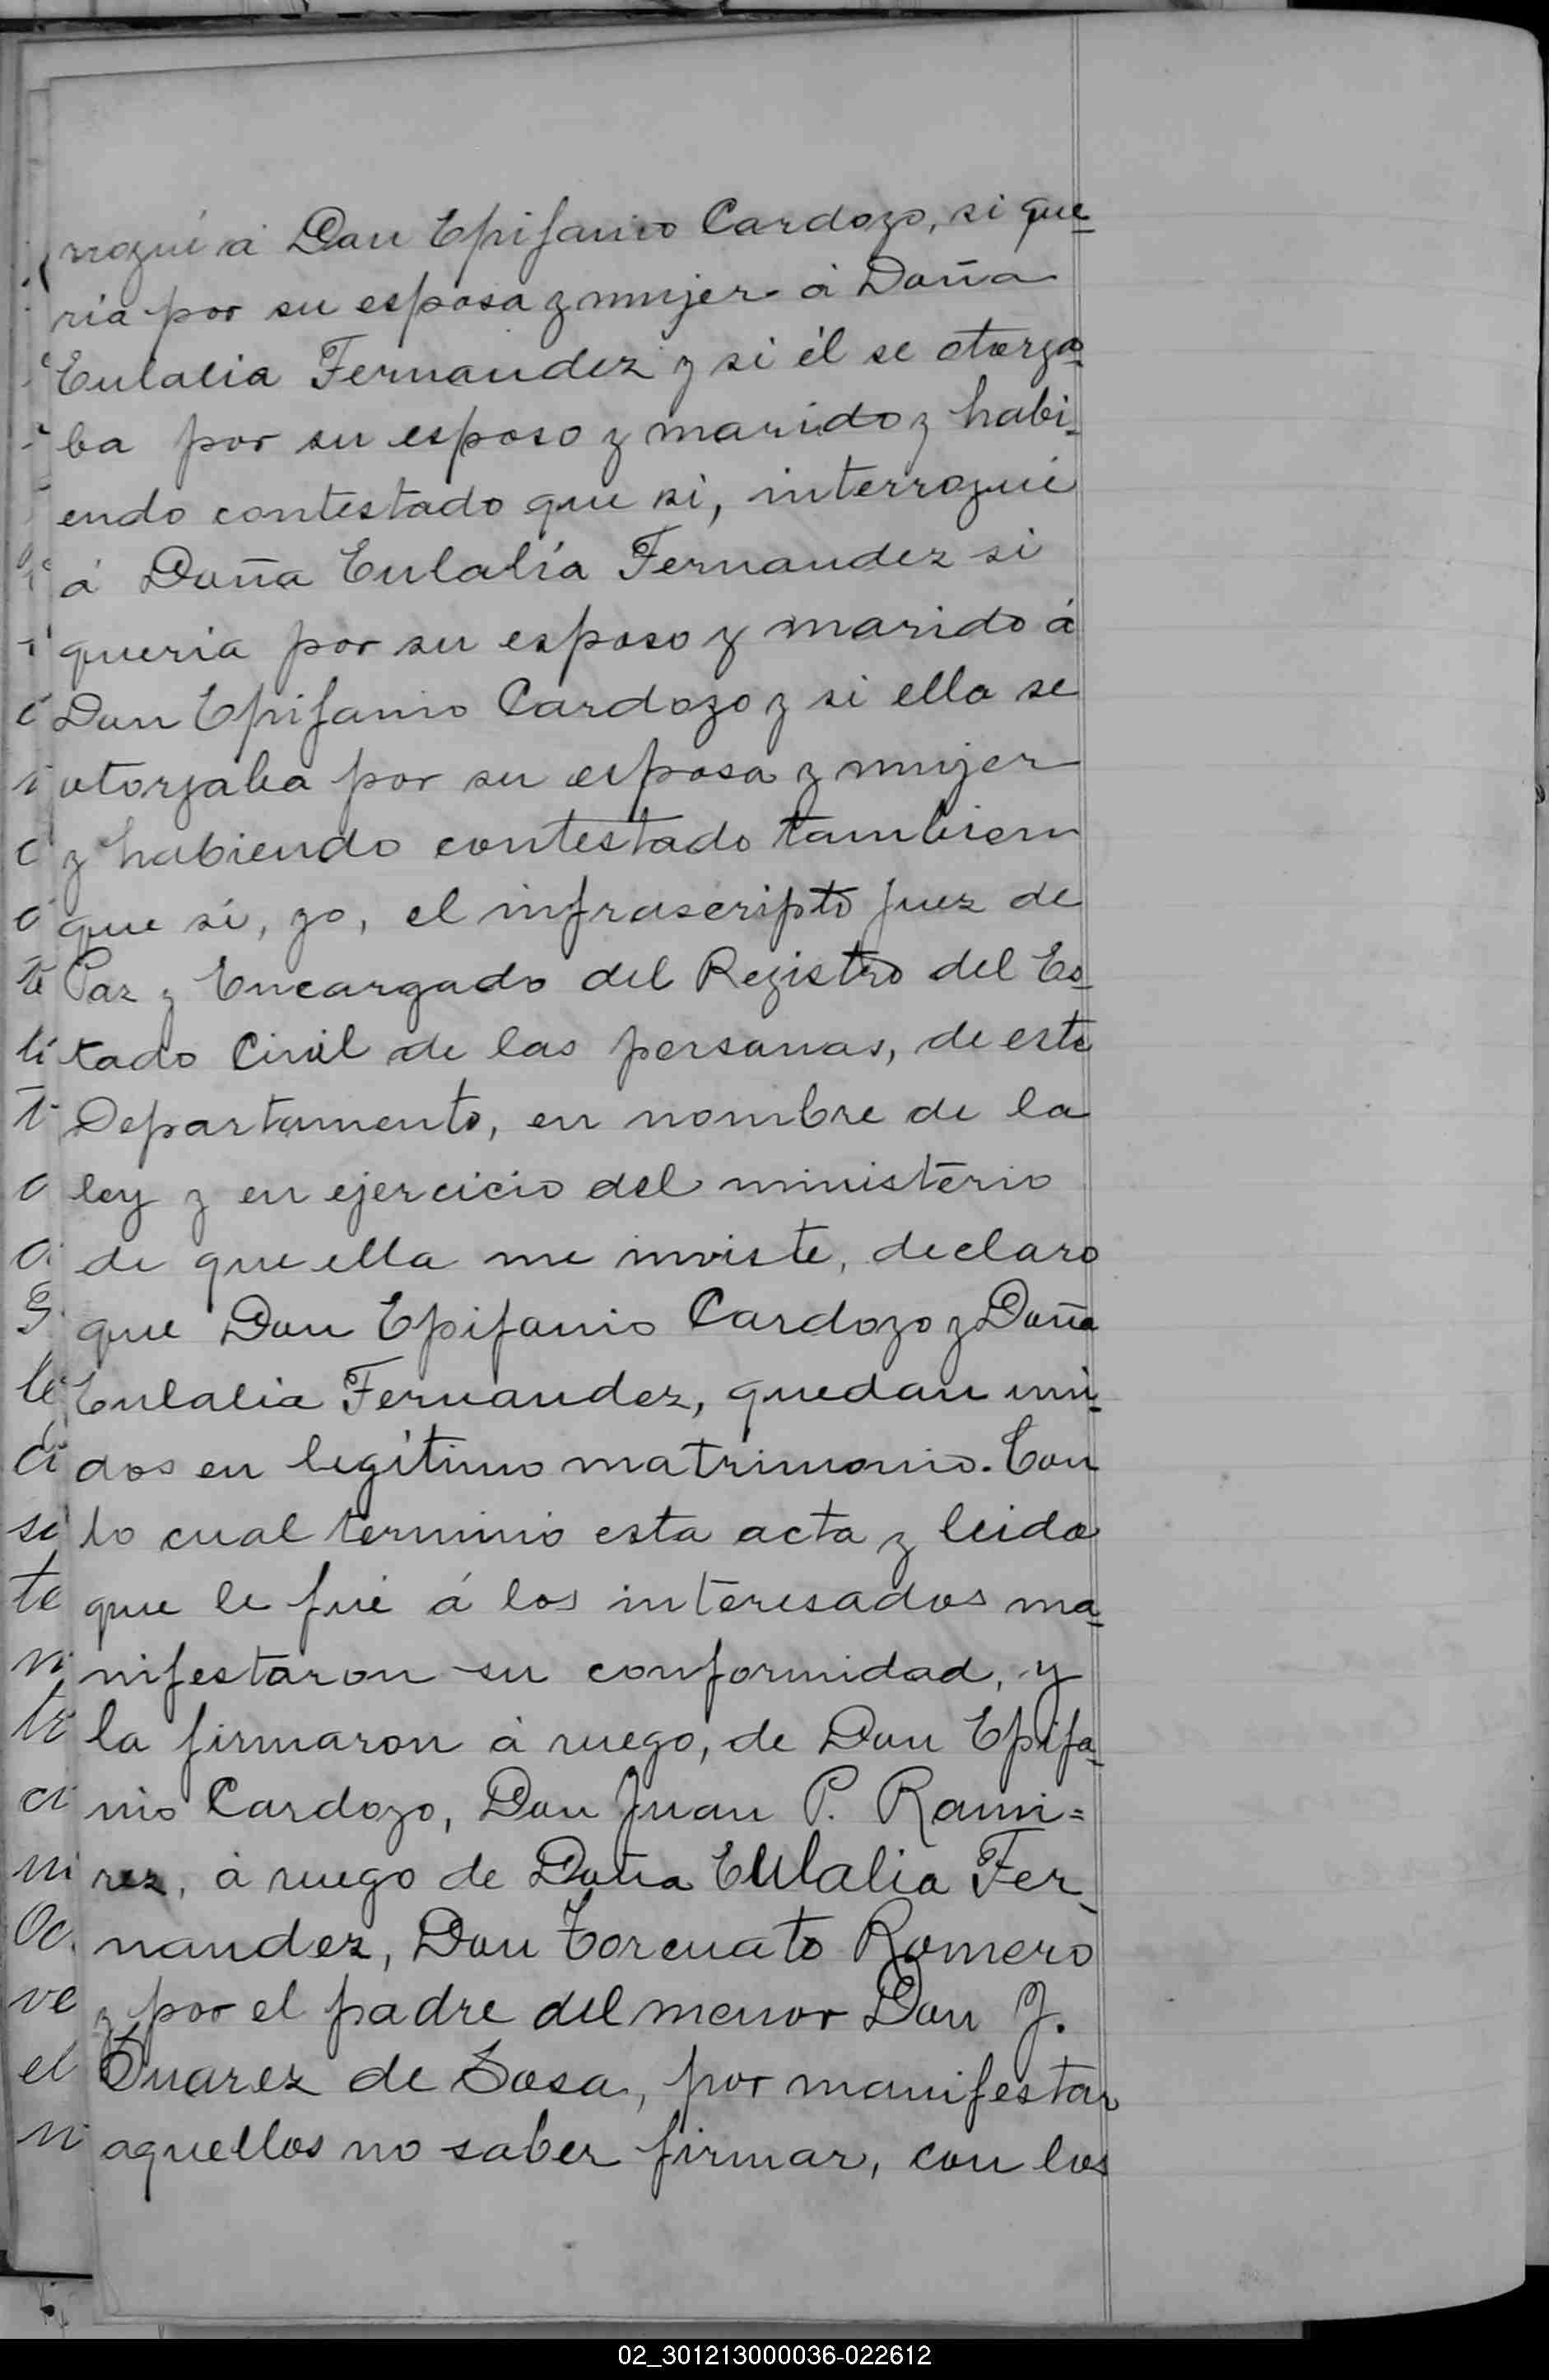 rrogué á Don Epifanio Cardozo, si que-
ria por su esposa y mujer á Doña
Eulalia Fernandez y si él se otorga-
ba por su esposo y marido y habi-
endo contestado que si, interrogué
á Doña Eulalia Fernandez si
queria por su esposo y marido á
Don Epifanio Cardozo y si ella se
otorgaba por su esposa y mujer
y habiendo contestado tambien
que si, yo, el infrascripto Juez de
Paz y Encargado del Registro del Es-
tado Civil de las personas, de este
Departamento, en nombre de la
ley y en ejercicio del ministerio
de que ella me inviste, declaro
que Don Epifanio Cardozo y Doña
Eulalia Fernandez, quedan uni-
dos en legítimo matrimonio. Con
lo cual terminó esta acta y leida
que le fué á los interesados ma-
nifestaron su conformidad, y
la firmaron á ruego, de Don Epifa-
nio Cardozo, Don Juan P. Rami=
rez, á ruego de Doña Eulalia Fer-
nandez, Don Torcuato Romero
y por el padre del menor Don J.
Suarez de Sosa, por manifestar
aquellos no saber firmar, con los
02_301213000036-022612